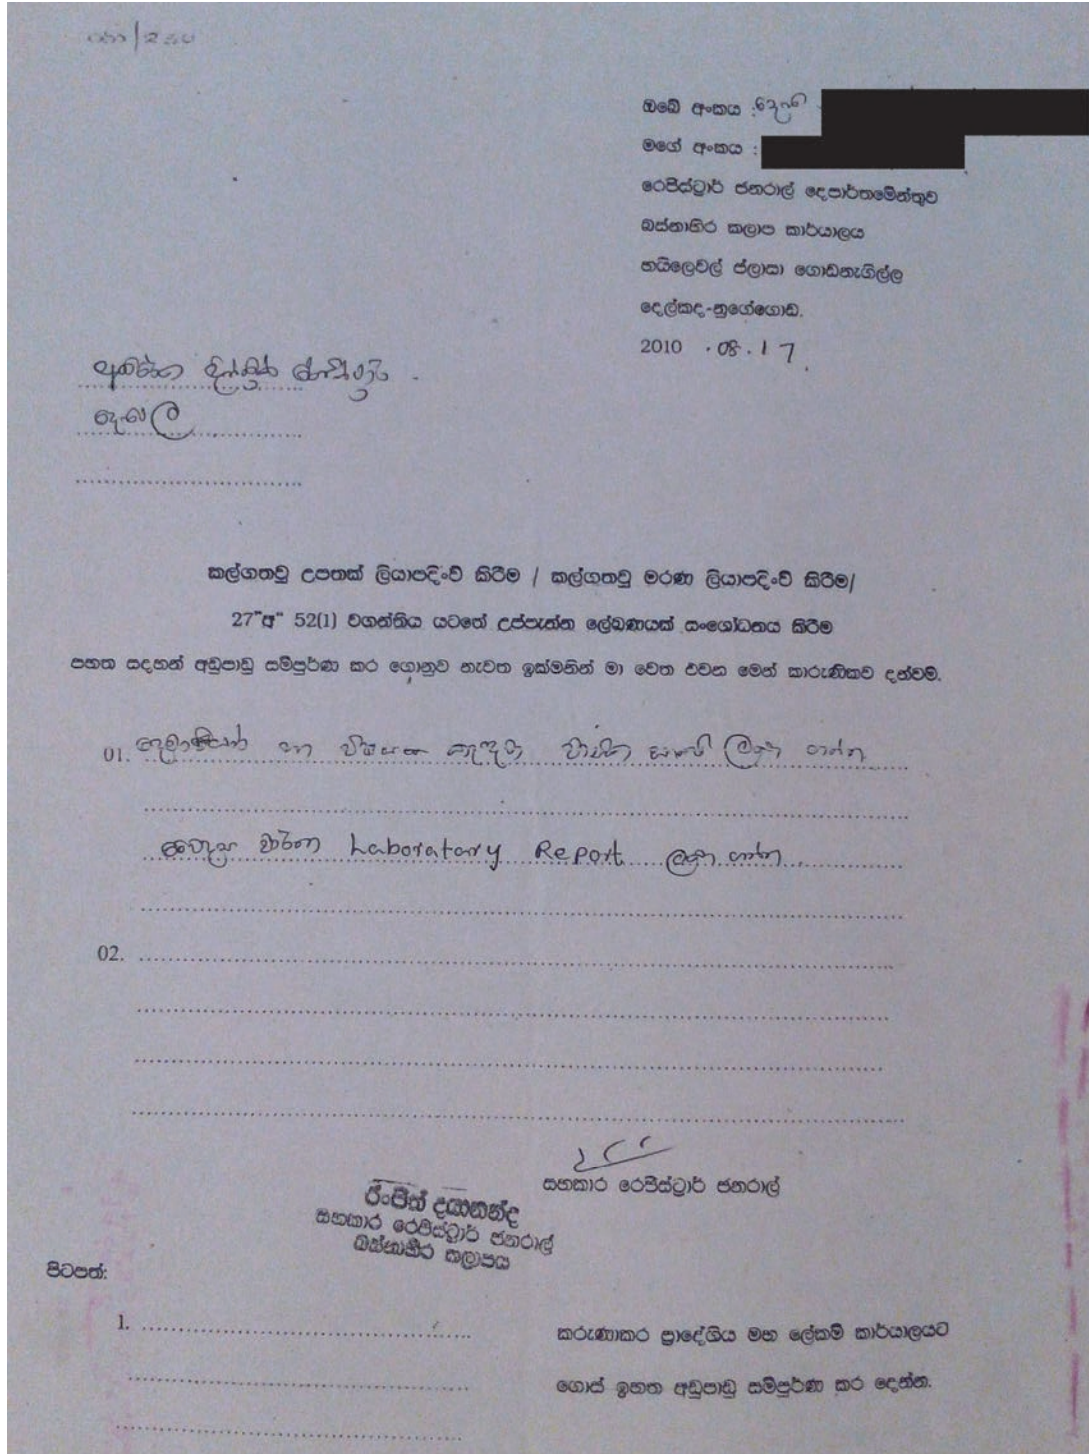 ඔබේ අංකය :
මගේ අංකය :
රෙජිස්ට්‍රාර් ජනරාල් දෙපාර්තමේන්තුව
බස්නාහිර කලාප කාර්යාලය
හයිලෙවල් ප්ලාසා ගොඩනැගිල්ල
දෙල්කද-නුගේගොඩ.
2010 . 08 . 17
කල්ගතවූ උපතක් ලියාපදිංචි කිරීම / කල්ගතවූ මරණ ලියාපදිංචි කිරීම/
27"අ" 52(1) වගන්තිය යටතේ උප්පැන්න ලේඛණයක් සංශෝධනය කිරීම
පහත සදහන් අඩුපාඩු සම්පූර්ණ කර ගොනුව නැවත ඉක්මනින් මා වෙත එවන මෙන් කාරුණිකව දන්වමි.
01. දෙමාපියන් හා
Laboratary Report ගන්න
02.
සහකාර රෙජිස්ට්‍රාර් ජනරාල්
රංජිත් දයානන්ද
සහකාර රෙජිස්ට්‍රාර් ජනරාල්
බස්නාහිර කලාපය
පිටපත්:
1.
කරුණාකර ප්‍රාදේශිය මහ ලේකම් කාර්යාලයට
ගොස් ඉහත අඩුපාඩු සම්පූර්ණ කර දෙන්න.